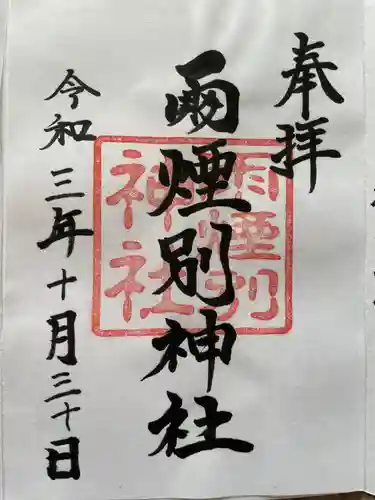 奉拝
雨煙別神社
雨煙別神社
令和三年十月三十日